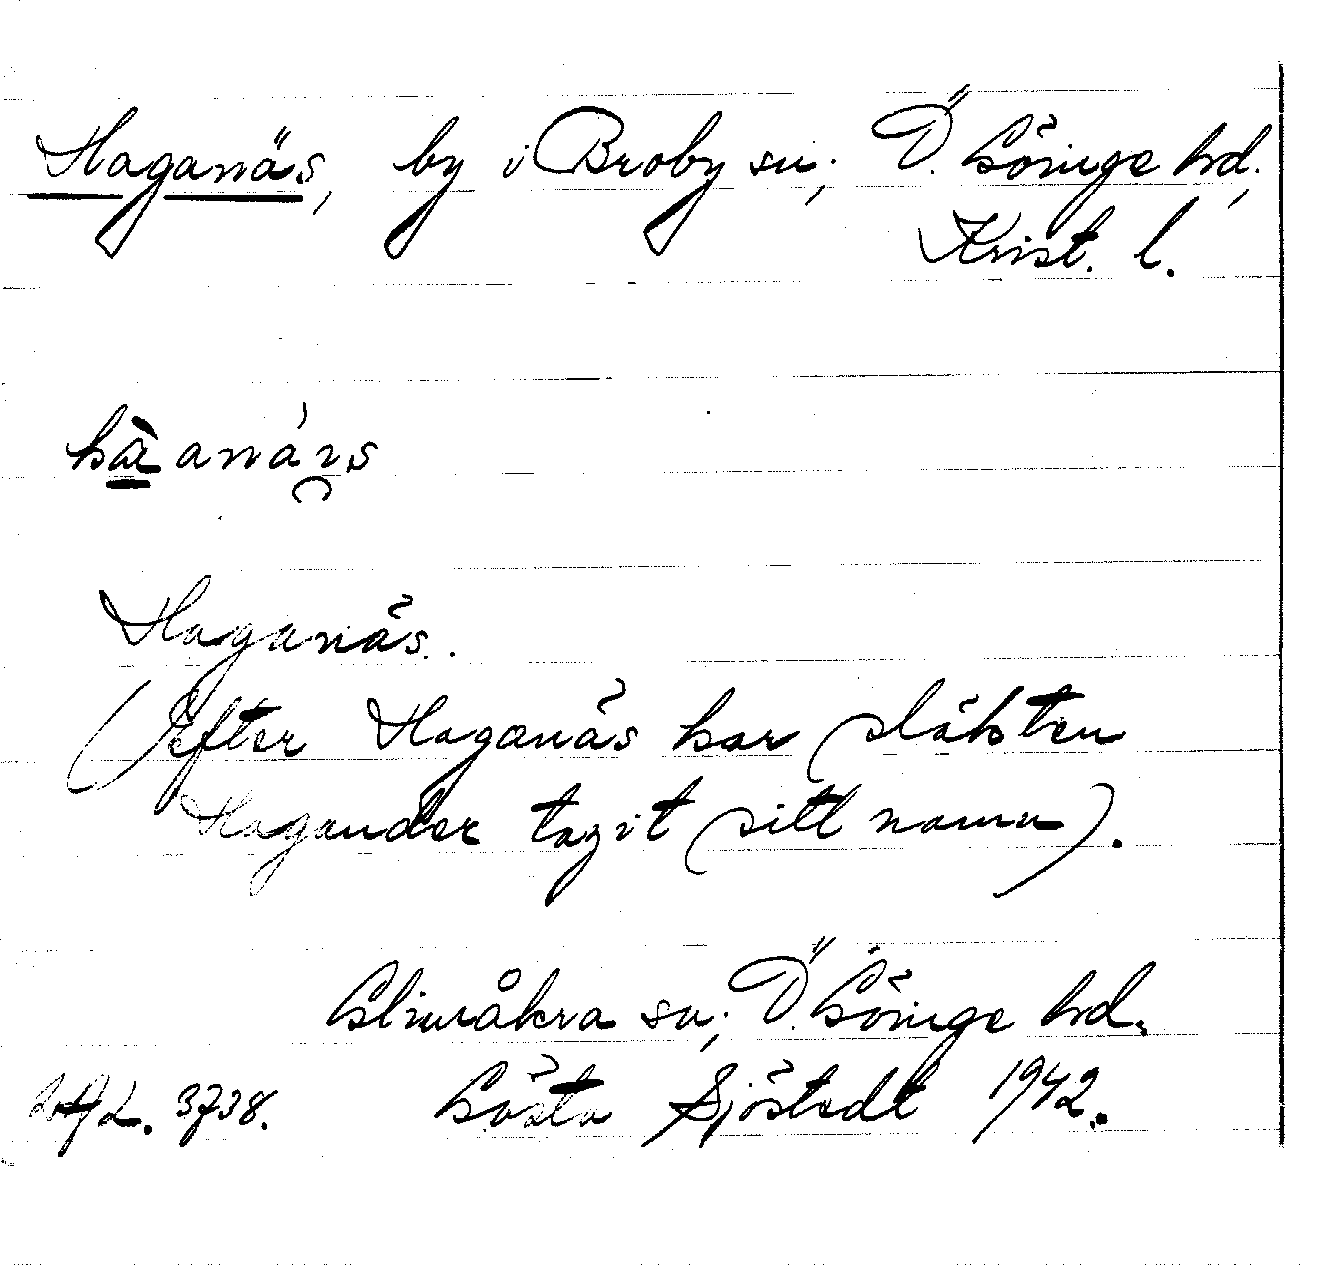 Haganäs, by i Broby sn; Ö. Göinge hd.,
Krist. l.
Haganäs.
(Efter Haganäs har släkten
Hagander tagit sitt namn).
Glimåkra sn; Ö. Göinge hd.
3738. Gösta Sjöstedt 1942.